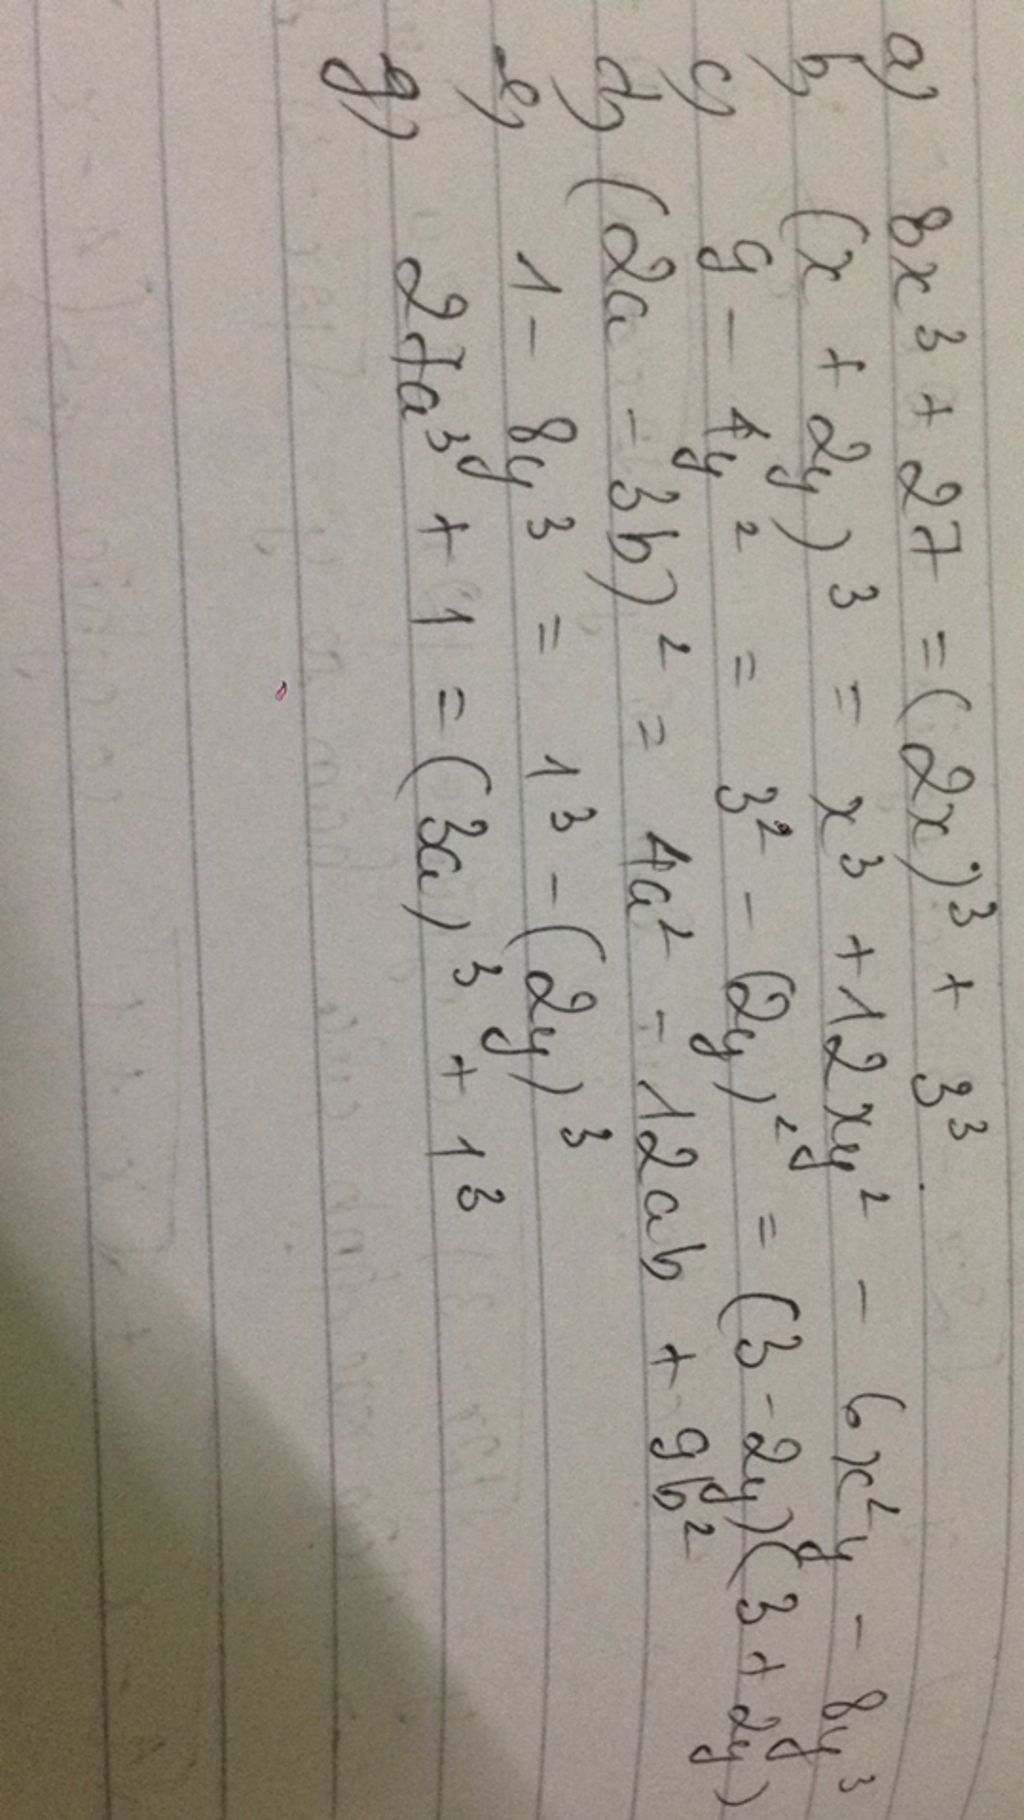 a) 8x³ + 27 = (2x)³ + 3³
b) (x + 2y)³ = x³ + 12xy² - 6x²y - 8y³
c) 9 - 4y² = 3² - (2y)² = (3 - 2y)(3 + 2y)
d) (2a - 3b)² = 4a² - 12ab + 9b²
e) 1 - 8y³ = 1³ - (2y)³
g) 27a³ + 1 = (3a)³ + 1³